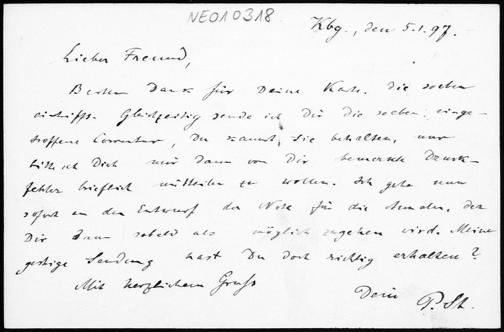 NEO10318
Kbg., den 5.1.97.
Lieber Freund,
Besten Dank für Deine Karte, die soeben
eintrifft. Gleichzeitig sende ich Dir die soeben einge-
troffene Correctur, Du kannst sie behalten, nur
bitte ich Dich mir dann von Dir bemerkte Druck-
fehler brieflich mitteilen zu wollen. Ich gehe nun
sofort an den Entwurf der Note für die Annalen, der
Dir dann sobald als möglich zugehen wird. Meine
gestrige Sendung hast Du doch richtig erhalten?
Mit herzlichem Gruß
Dein P. St.